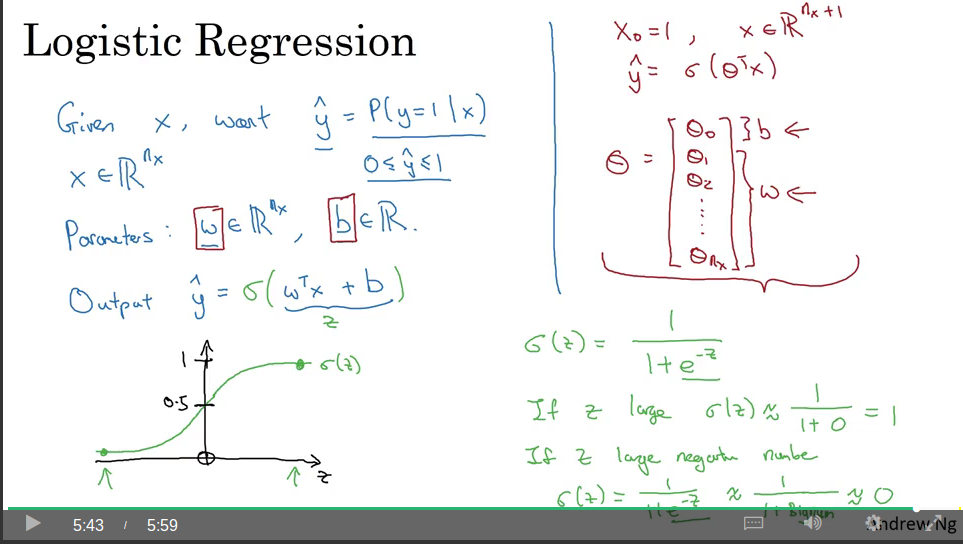 Logistic Regression
Given x, want ŷ = P(y=1|x)
x ∈ ℝ^nx
0 ≤ ŷ ≤ 1
Parameters: w ∈ ℝ^nx, b ∈ ℝ.
Output ŷ = σ(wᵀx + b)
z
1
σ(z)
0.5
z
x₀ = 1, x ∈ ℝ^nx+1
ŷ = σ(θᵀx)
θ = [θ₀ θ₁ θ₂ ⋮ θnx]
} b ←
} w ←
σ(z) = 1 / (1 + e^-z)
If z large σ(z) ≈ 1 / (1 + 0) = 1
If z large negative number
σ(z) = 1 / (1 + e^-z) ≈ 1 / (1 + Bignum) ≈ 0
5:43 / 5:59
Andrew Ng